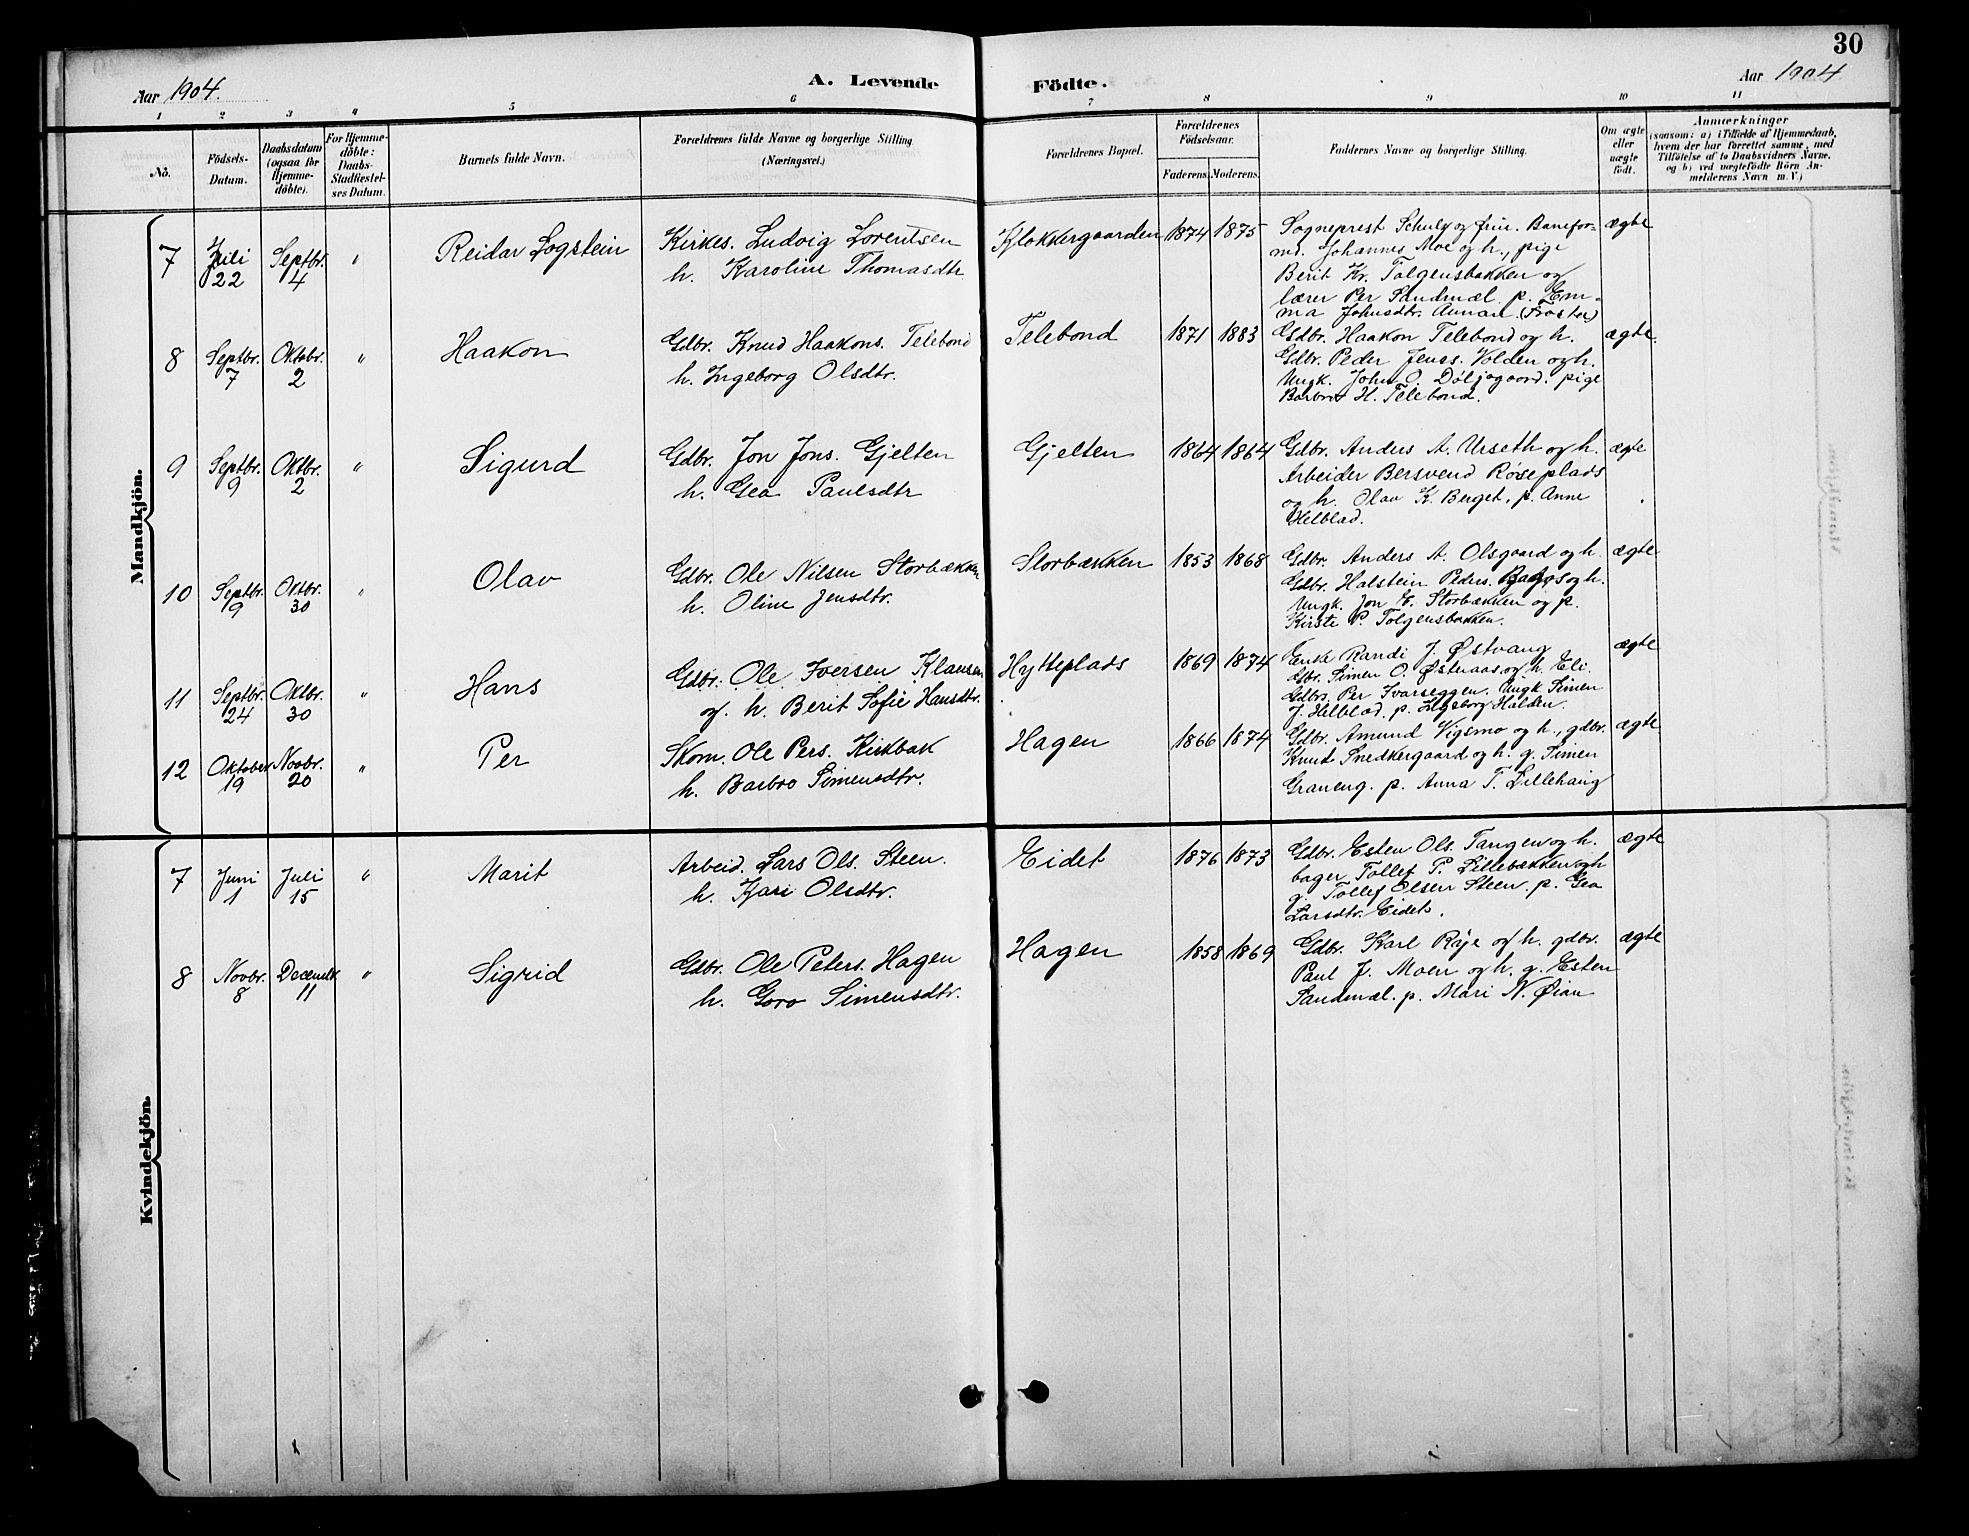 30
Aar 1904.
A. Levende
Födte.
Aar 1904
1 2 3 4 5 6 7 8 9 10 11
No.
Födsels-Datum.
Daabsdatum (ogsaa for Hjemme-döbte).
For Hjemme-döbte: Daabs-Stadfæstel-ses Datum.
Barnets fulde Navn.
Forældrenes fulde Navne og borgerlige Stilling.
(Næringsvei.)
Forældrenes Bopæl.
Forældrenes Födselsaar.
Faderens. Moderens.
Faddernes Navne og borgerlige Stilling.
Om ægte eller uægte födt.
Anmærkninger
(saasom: a) i Tilfælde af Hjemmedaab,
hvem der har forrettet samme, med
Tilföielse af to Daabsvidners Navne,
og b) ved uægtefödte Börn An-
melderens Navn m. V.)
Mandkjön.
7 Juli 22 Septbr. 4 " Reidar Logstein
Kirkes. Ludvig Lorentsen
h. Karoline Thomasdtr
Klokkergaarden 1874 1875
Sogneprest Schulz og frue. Banefor-
md. Johannes Moe og h., pige
Berit Kr. Tolgensbakken og
lærer Per Sandmæl. p. Em-
ma Johnsdtr. Aunan. (Frosta)
ægte
8 Septbr. 7 Oktobr. 2 " Haakon
Gdbr. Knud Haakons. Telebond
h. Ingeborg Olsdtr.
Telebond 1871 1883
Gdbr. Haakon Telebond og h.
Gdbr. Peder Jens. Volden og h.
Ungk. John O. Döljegaard. pige
Barbro H. Telebond.
ægte.
9 Septbr. 9 Oktbr. 2 " Sigurd
Gdbr. Jon Jons. Gjelten
h. Gea Paulsdtr
Gjelten 1864 1864
Gdbr. Anders A. Urseth og h.
Arbeider Bersvend Röseplads
og h. Olav K. Berget, p. Anne
Helblad.
ægte
10 Septbr. 9 Oktbr. 30 " Olav
Gdbr. Ole Nilsen Storbækken
h. Oline Jensdtr.
Storbækken 1853 1868
Gdbr. Anders A. Olsgaard og h.
Gdbr. Halstein Peders. og h.
Ungk. Jon K. Storbækken og p.
Kirsti P. Tolgensbakken.
ægte
11 Septbr. 24 Oktbr. 30 " Hans
Gdbr. Ole Iversen Klausen
og h. Berit Sofie Hansdtr.
Hytteplads 1869 1874
Enke Randi J. Østvang
Gbr. Simen O. Østeraas og h. Eli.
Gdbrs. Per Ivarseggen. Ungk Simen
J. Helblad. p. Ingeborg Halden.
ægte
12 Oktober 19 Novbr. 20 " Per
Skom. Ole Pers. Kirkbak
h. Barbro Simensdtr.
Hagen 1866 1874
Gdbr. Amund Vigsmo og h., gdbr.
Knud Snedkergaard og h. g. Simen
Graneng. p. Anna T. Lillehaug
ægte
Kvindekjön.
7 Juni 1 Juli 15 " Marit
Arbeid. Lars Ols. Steen.
h. Kari Olsdtr.
Eidet 1876 1873
Gdbr. Esten Ols. Tangen og h.
bager Tollef P. Lillebækken og h
g. Tollef Olsen Steen. p. Gea
Larsdtr. Eidet.
ægte
8 Novbr. 8 Decembr. 11 " Sigrid
Gdbr. Ole Peters. Hagen
h. Goro Simensdtr.
Hagen 1858 1869
Gdbr. Karl Rye og h. gdbr.
Paul J. Moen og h. g. Esten
Sandmæl. p. Mari N. Øian
ægte